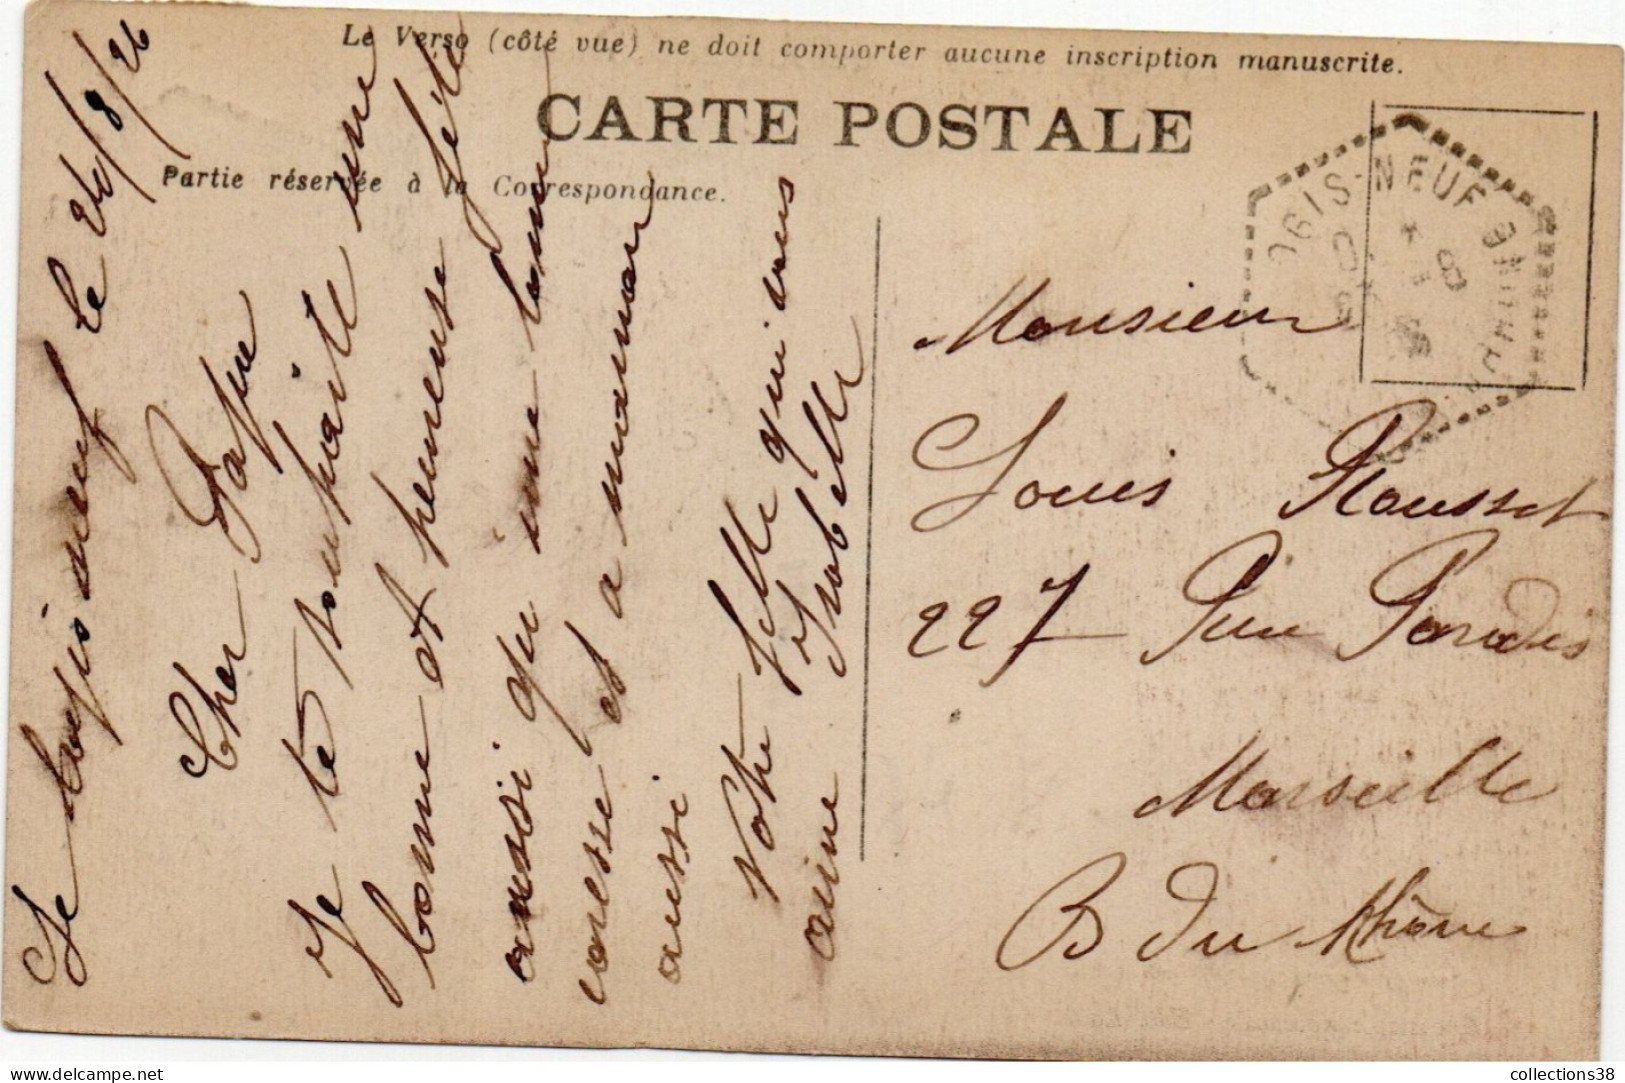 Le Verso (côté vue) ne doit comporter aucune inscription manuscrite.
CARTE POSTALE
Partie réservée à la Correspondance.
Le logis neuf le 26/8/26
Cher Papa
Je te souhaite une
bonne et heureuse fête
aussi qu'une bonne
caresse et a maman
aussi
Votre fille qui vous
aime Isabelle
Monsieur
Louis Rousset
227 Rue Paradis
Marseille
B du Rhône
LOGIS-NEUF B.DU RHÔNE
collections38